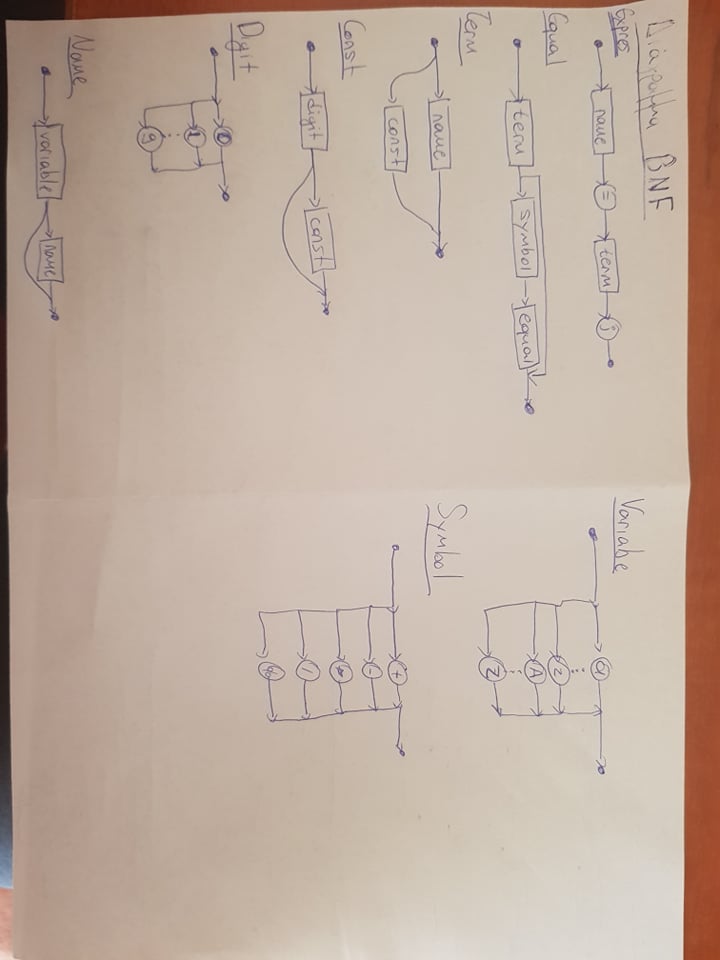 Διάγραμμα BNF
Expres
name = term ;
Equal
term symbol equal
Term
name
const
Const
digit const
Digit
0
1
⋮
9
Name
variable name
Variabe
a
⋮
z
A
⋮
Z
Symbol
+
-
*
/
%